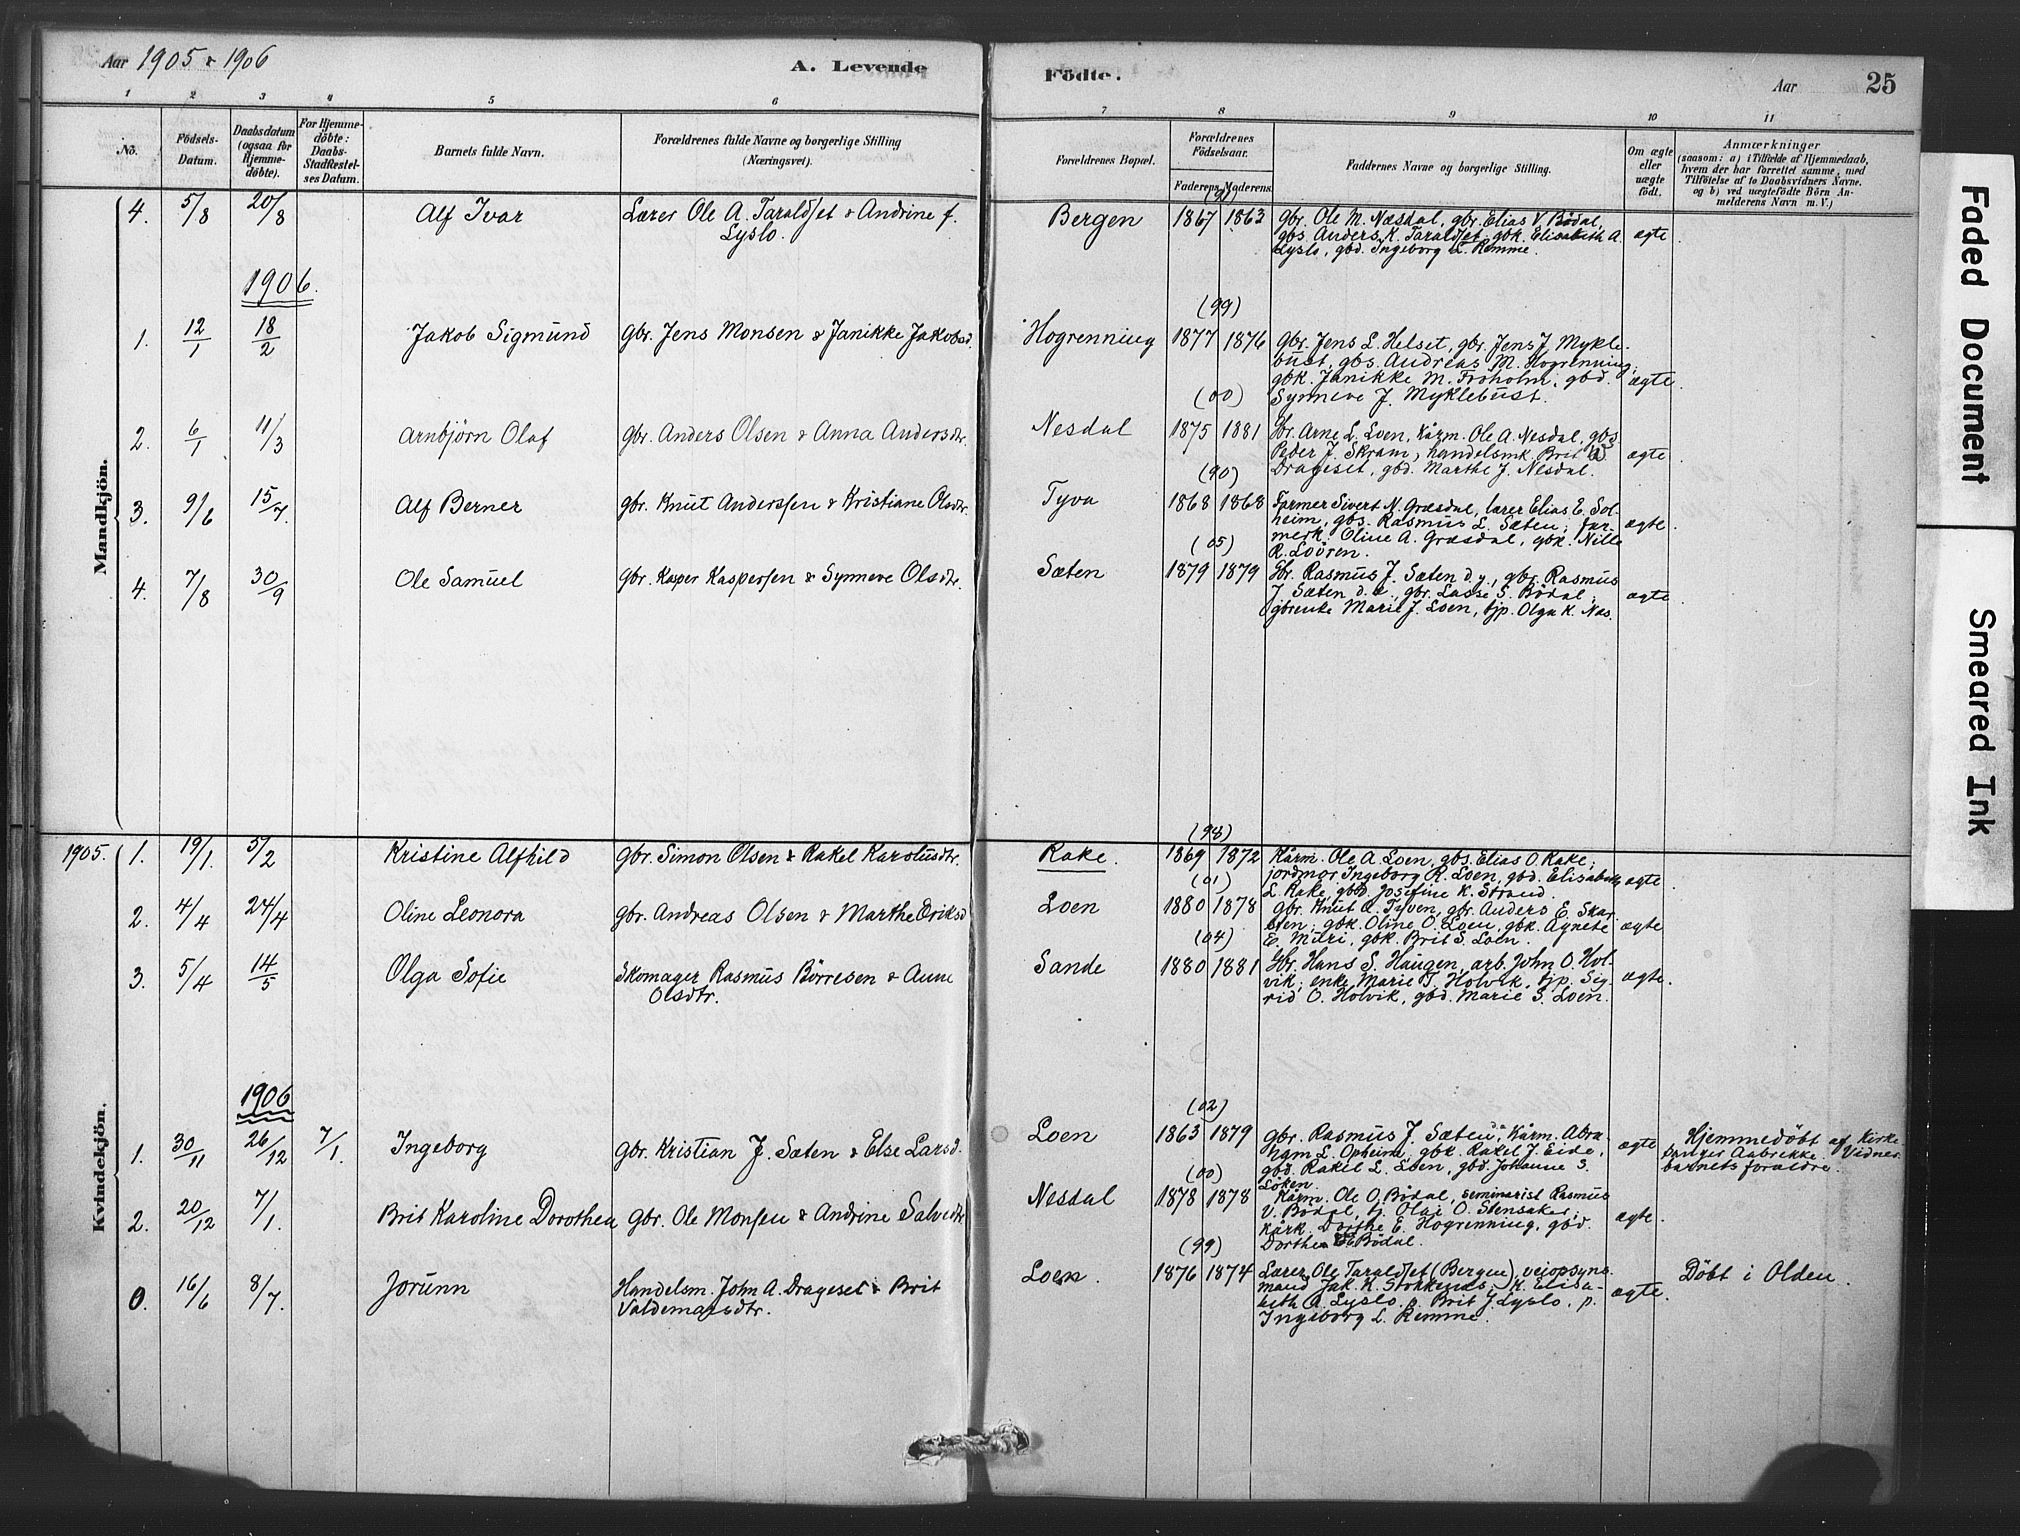 Aar 1905 & 1906
A. Levende
Födte.
Aar
25
1 2 3 4 5 6 7 8 9 10 11
No.
Födsels-
Datum.
Daabsdatum
(ogsaa for
Hjemme-
döbte).
For Hjemme-
döbte:
Daabs-
Stadfæstel-
ses Datum.
Barnets fulde Navn.
Forældrenes fulde Navne og borgerlige Stilling
(Næringsvei).
Forældrenes Bopæl.
Forældrenes
Födselsaar.
Faderens Moderens
Faddernes Navne og borgerlige Stilling.
Om ægte
eller
uægte
født.
Anmærkninger
(saasom: a) i Tilfælde af Hjemmedaab,
hvem der har forrettet samme, med
Tilföielse af to Daabsvidners Navne,
og b) ved uægtefödte Börn An-
melderens Navn m. V.)
Mandkjön.
4. 5/8 20/8 Alf Ivar
Lærer Ole A. Taraldset & Andrine f.
Lyslo.
Bergen 1867 1863
gbr. Ole M. Næsdal, gbr. Elias V. Bödal,
gbs. Anders K. Taraldset, gbk. Elisabeth A.
Lyslo, gbd. Ingeborg L. Remme.
ægte.
1906.
1. 12/1 18/2 Jakob Sigmund
gbr. Jens Monsen & Janikke Jakobsd.
Hogrenning (99) 1877 1876
Gbr. Jens L. Helset, gbr. Jens J. Mykle-
bust, gbs. Andreas M. Hogrenning;
gbk. Janikke M. Froholm, gbd.
Synneve J. Myklebust.
ægte.
2. 6/1 11/3 Arnbjörn Olaf
gbr. Anders Olsen & Anna Andersdtr.
Nesdal (00) 1875 1881
Gbr. Arne L. Loen, kårm. Ole A. Nesdal, gbs.
Peder J. Skram; handelsmk. Brit W.
Drageset, gbd. Marthe J. Nesdal.
ægte
3. 9/6 15/7. Alf Berner
gbr. Knut Anderssen & Kristiane Olsdtr.
Tyva (90) 1868 1868
Farmer Sivert N. Græsdal, lærer Elias E. Sol-
heim, gbs. Rasmus L. Sæten; far-
merk. Oline A. Græsdal, gbk. Nille
R. Loören.
ægte.
4. 7/8 30/9 Ole Samuel
gbr. Kasper Kaspersen & Synneve Olsdtr.
Sæten (05) 1879 1879
Gbr. Rasmus J. Sæten d.y., gbr. Rasmus
J. Sæten d.e., gbr. Lasse S. Bödal;
gbrenke Marie J. Loen, tjp. Olga K. Nes.
ægte.
Kvindekjön.
1905. 1. 19/1. 5/2 Kristine Alfhild
gbr. Simon Olsen & Rakel Karolusdtr.
Rake. (98) 1869 1872
Kårm. Ole A. Loen, gbs. Elias O. Rake;
jordmor Ingeborg R. Loen, gbd. Elisabeth
L. Rake, gbd. Josefine K. Strand.
ægte
2. 4/4 24/4 Oline Leonora
gbr. Andreas Olsen & Marthe Eriksd.
Loen (01) 1880 1878
gbr. Knut A. Tyven, gbr. Anders E. Skar-
sten; gbk. Oline O. Loen, gbk. Agnete
E. Muri, gbk. Brit S. Loen.
ægte
3. 5/4 14/5 Olga Sofie
Skomager Rasmus Börresen & Anne
Olsdtr.
Sande (04) 1880 1881
Gbr. Hans S. Haugen, arb. John O. Hol-
vik; enke Marie T. Holvik, tjp. Sig-
rid O. Holvik, gbd. Marie S. Loen.
ægte.
1906
1. 30/11 26/12 7/1. Ingeborg
gbr. Kristian J. Sæten & Else Larsd.
Loen (02) 1863 1879
gbr. Rasmus J. Sæten, Kårm. Abra-
ham L. Opheim; gbk. Rakel J. Eide,
gbd. Rakel L. Loen, gbd. Johanne S.
Löken.
ægte
Hjemmedöbt af Kirke-
sanger Aabrekke. Vidner
barnets forældre.
2. 20/12 7/1. Brit Karoline Dorothea
gbr. Ole Monsen & Andrine Salvedtr.
Nesdal (00) 1878 1878
Kårm. Ole O. Bödal, seminarist Rasmus
V. Bödal, tj. Olai O. Stensaker;
kårk. Dorthe E. Hogrenning, gbd.
Dorthea E. Bödal.
ægte.
0. 16/6 8/7. Jorunn
Handelsm. John A. Drageset & Brit
Valdemarsdtr.
Loen. (99) 1876 1874
Lærer Ole Taraldset (Bergen), veiopsyns-
mand Jak. K. Stokkenes; K. Elisa-
beth A. Lyslo, p. Brit J. Lyslo, p.
Ingeborg L. Remme.
ægte.
Döbt i Olden.
Faded Document
Smeared Ink